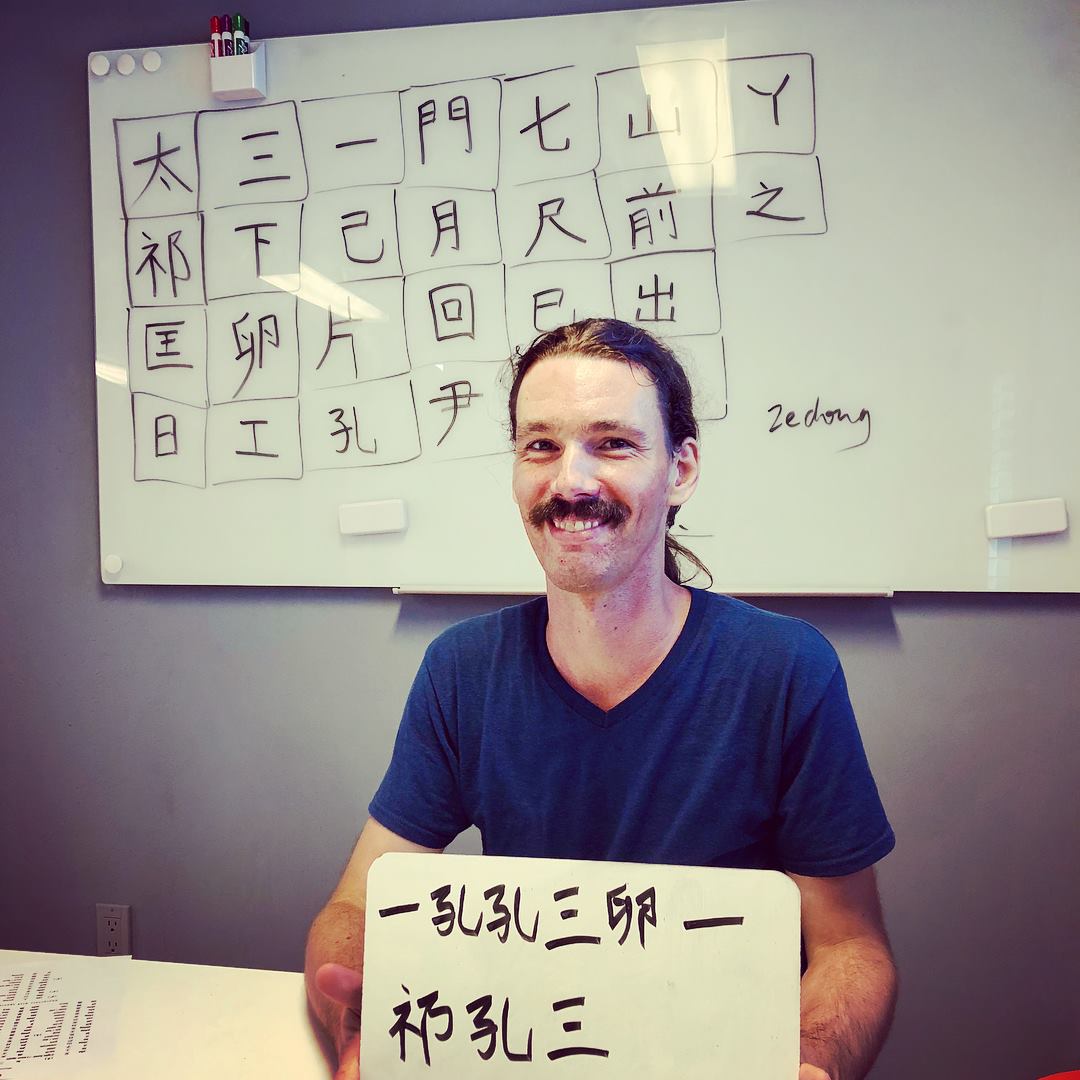 太 三 一 門 七 山 丫
祁 下 己 月 尺 前 之
匡 卵 片 回 巳 出
日 工 孔 尹
zedong
一孔孔三卵一
祁孔三